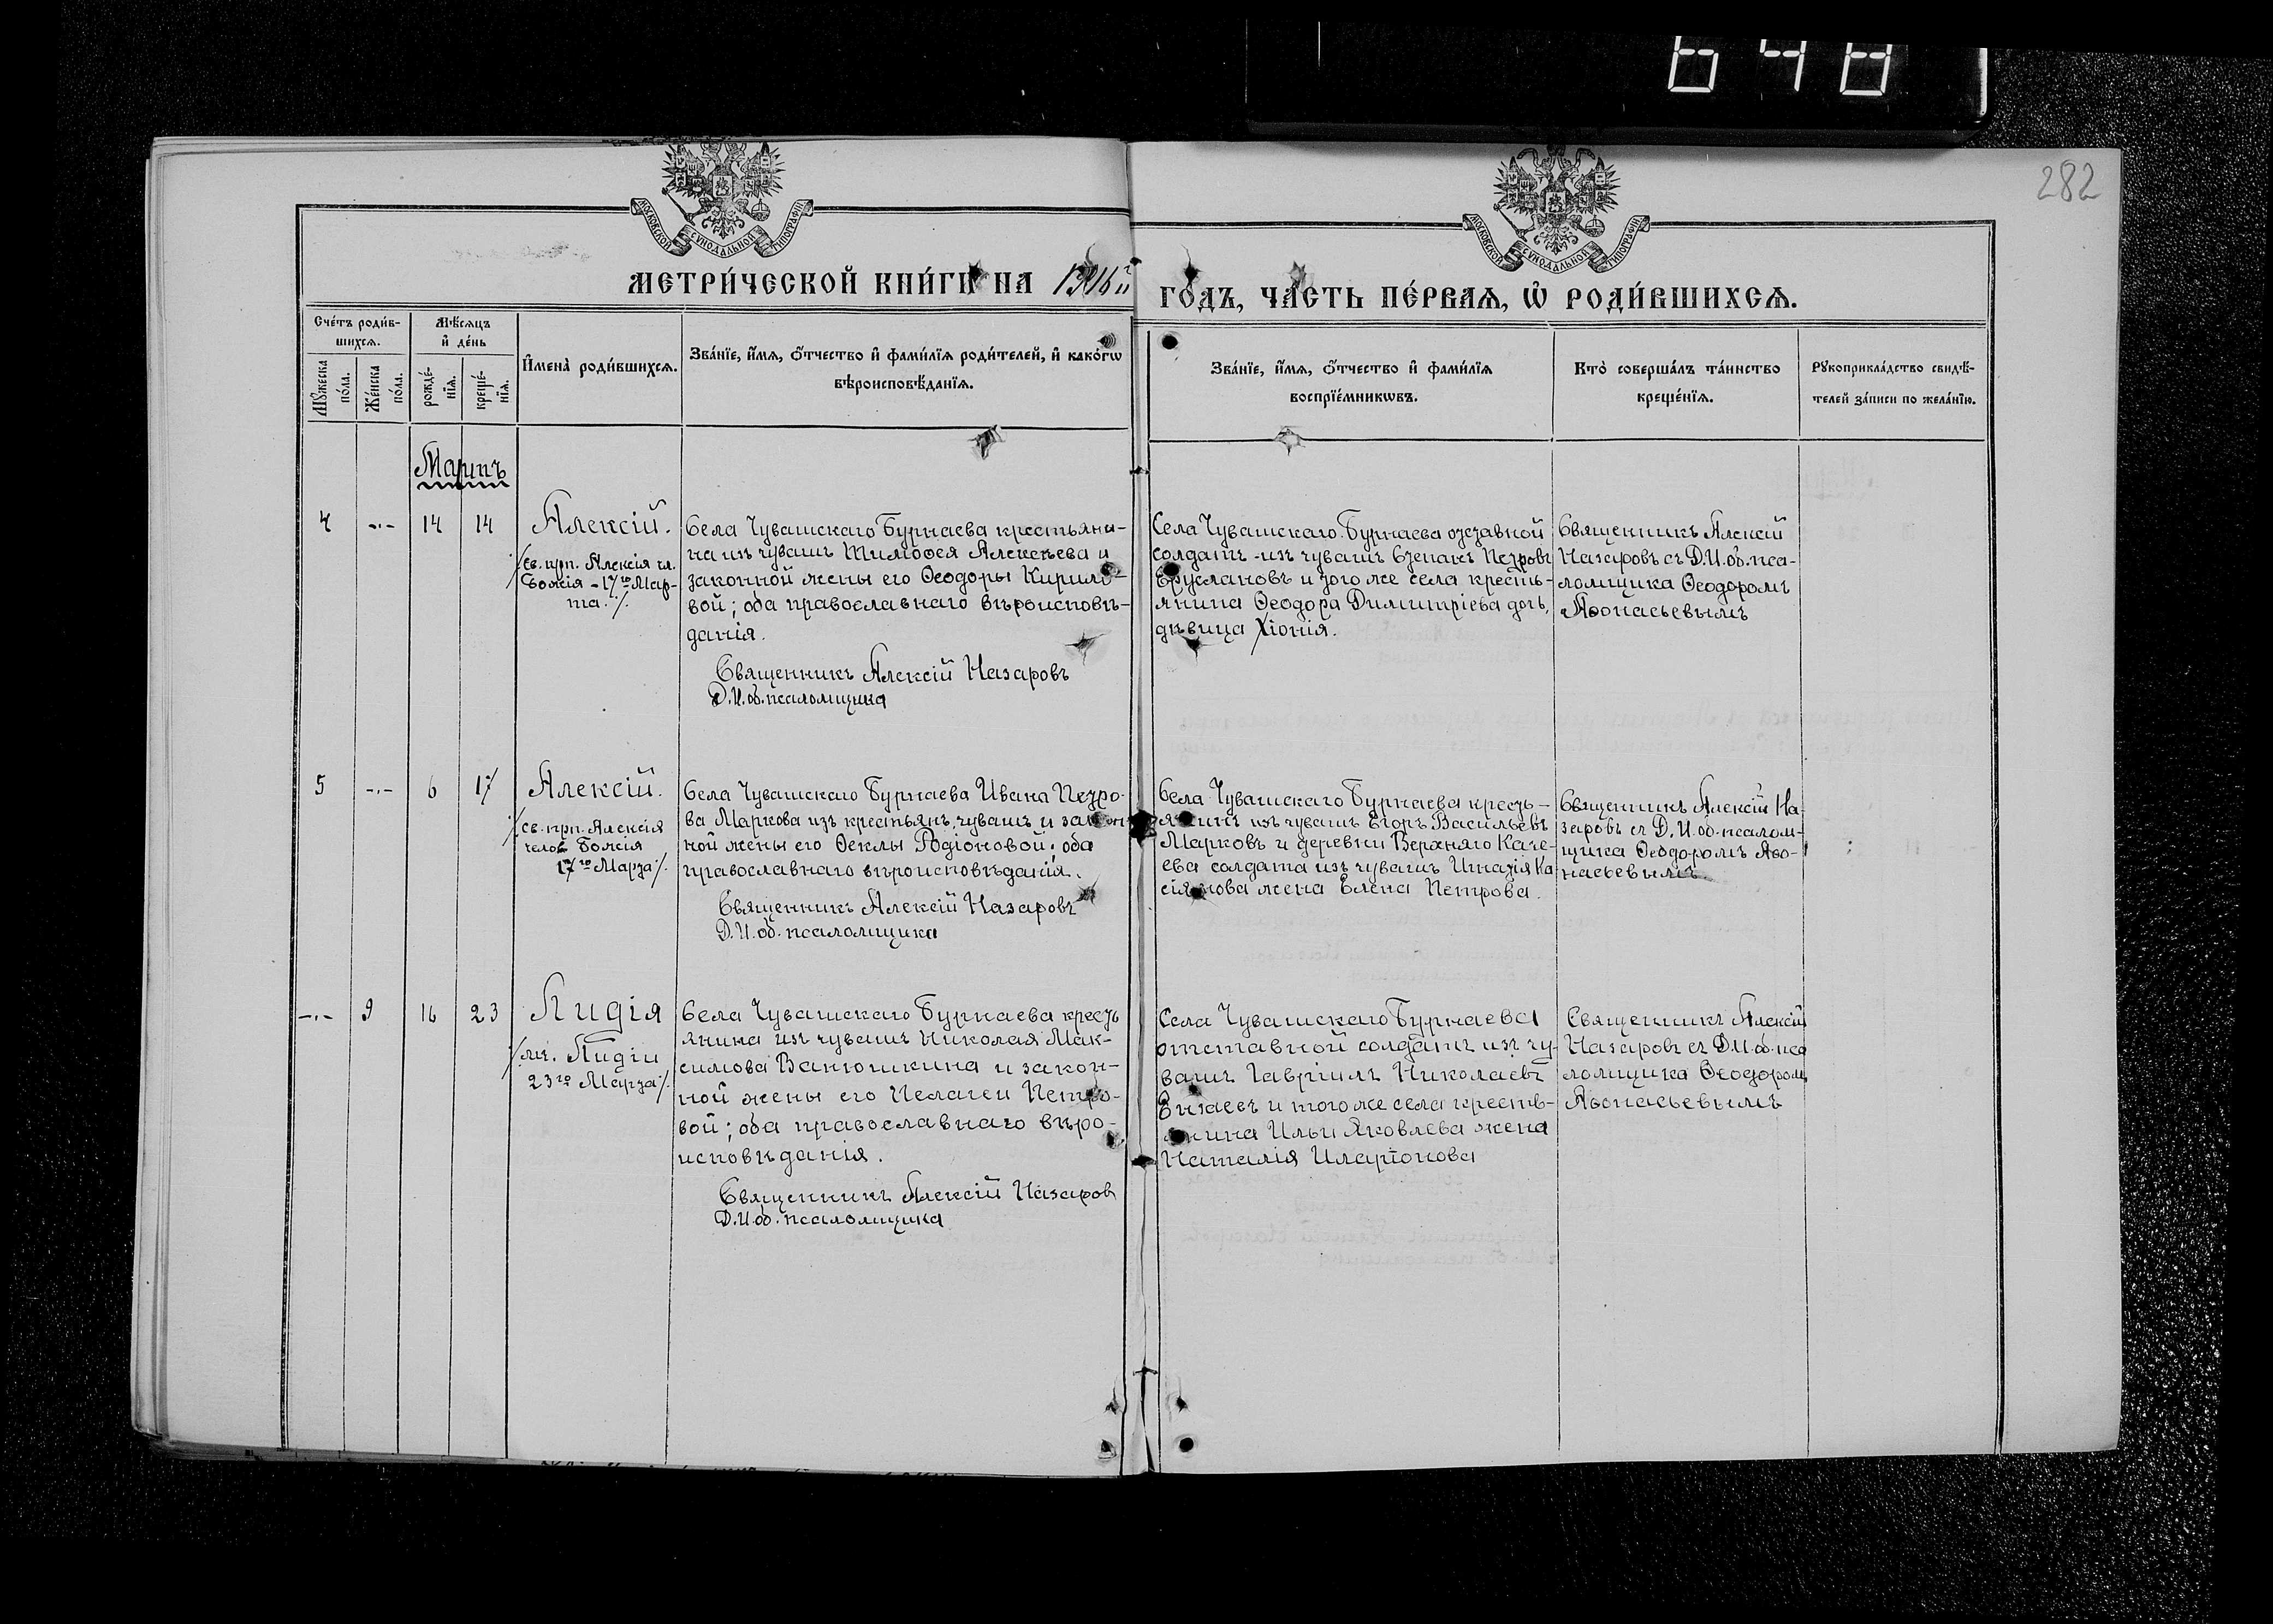 648
282
МОСКОВСКОЙ СѴНОДАЛЬНОЙ ТИПОГРАФІИ
МОСКОВСКОЙ СѴНОДАЛЬНОЙ ТИПОГРАФІИ
МЕТРИ́ЧЕСКОЙ КНИ́ГИ НА 1916 й
ГО́ДЪ, ЧА́СТЬ ПЕ́РВАѦ, Ѽ РОДИ́ВШИХСѦ.
Сче́тъ роди́в-
шихсѧ.
Мꙋ́жеска по́ла.
Же́нска по́ла.
Мѣ́сѧцъ
и҆ де́нь
рожде́-
нїѧ.
креще́-
нїѧ.
И҆мена̀ роди́вшихсѧ.
Зва́нїе, и҆́мѧ, ѻ҆́тчество и҆ фами́лїѧ роди́телей, и҆ како́гѡ
вѣроисповѣ́данїѧ.
Зва́нїе, и҆́мѧ, ѻ҆́тчество и҆ фами́лїѧ
воспрїе́мникѡвъ.
Кто̀ соверша́лъ та́инство
креще́нїѧ.
Рꙋкоприкла́дство свидѣ́-
телей за́писи по жела́нїю.
Мартъ
4 -·- 14 14
Алексій.
/св. прп. Алексія чл.
Божія - 17го Мар-
та./.
Села Чувашскаго Бурнаева крестьяни-
на изъ чувашъ Тимоѳея Алексѣева и
законной жены его Ѳеодоры Кирило-
вой; оба православнаго вѣроисповѣ-
данія.
Священникъ Алексій Назаровъ
Д.И.об. псаломщика
Села Чувашскаго Бурнаева отставной
солдатъ изъ чувашъ Степанъ Петровъ
Еруслановъ и того же села кресть-
янина Ѳеодора Димитріева дочь,
дѣвица Хіонія.
Священникъ Алексій
Назаровъ съ Д.И.об.пса-
ломщика Ѳеодоромъ
Аѳонасьевымъ
5 -·- 6 17
Алексій.
/св. прп. Алексія
челов. Божія
17го Марта/.
Села Чувашскаго Бурнаева Ивана Петро-
ва Маркова изъ крестьянъ чувашъ и закон
ной жены его Ѳеклы Родіоновой; оба
православнаго вѣроисповѣданія.
Священникъ Алексій Назаровъ
Д.И.об. псаломщика
Села Чувашскаго Бурнаева кресть-
янинъ изъ чувашъ Егоръ Васильевъ
Марковъ и деревни Верхняго Каче-
ева солдата изъ чувашъ Игнатія Ка
сіянова жена Елена Петрова.
Священникъ Алексій На-
заровъ съ Д.И.об.псалом-
щика Ѳеодоромъ Аѳо-
насьевымъ
-·- 9 16 23
Лидія
/мц. Лидіи
23го Марта/.
Села Чувашскаго Бурнаева кресть
янина изъ чувашъ Николая Мак-
симова Ванюшкина и закон-
ной жены его Пелагеи Петро-
вой; оба православнаго вѣро-
исповѣданія.
Священникъ Алексій Назаровъ
Д.И.об. псаломщика
Села Чувашскаго Бурнаева
отставной солдатъ изъ чу-
вашъ Гавріилъ Николаевъ
и того же села кресть-
янина Ильи Яковлева жена
Наталія Иларіонова
Священникъ Алексій
Назаровъ съ Д.И.об.пса
ломщика Ѳеодоромъ
Аѳонасьевымъ